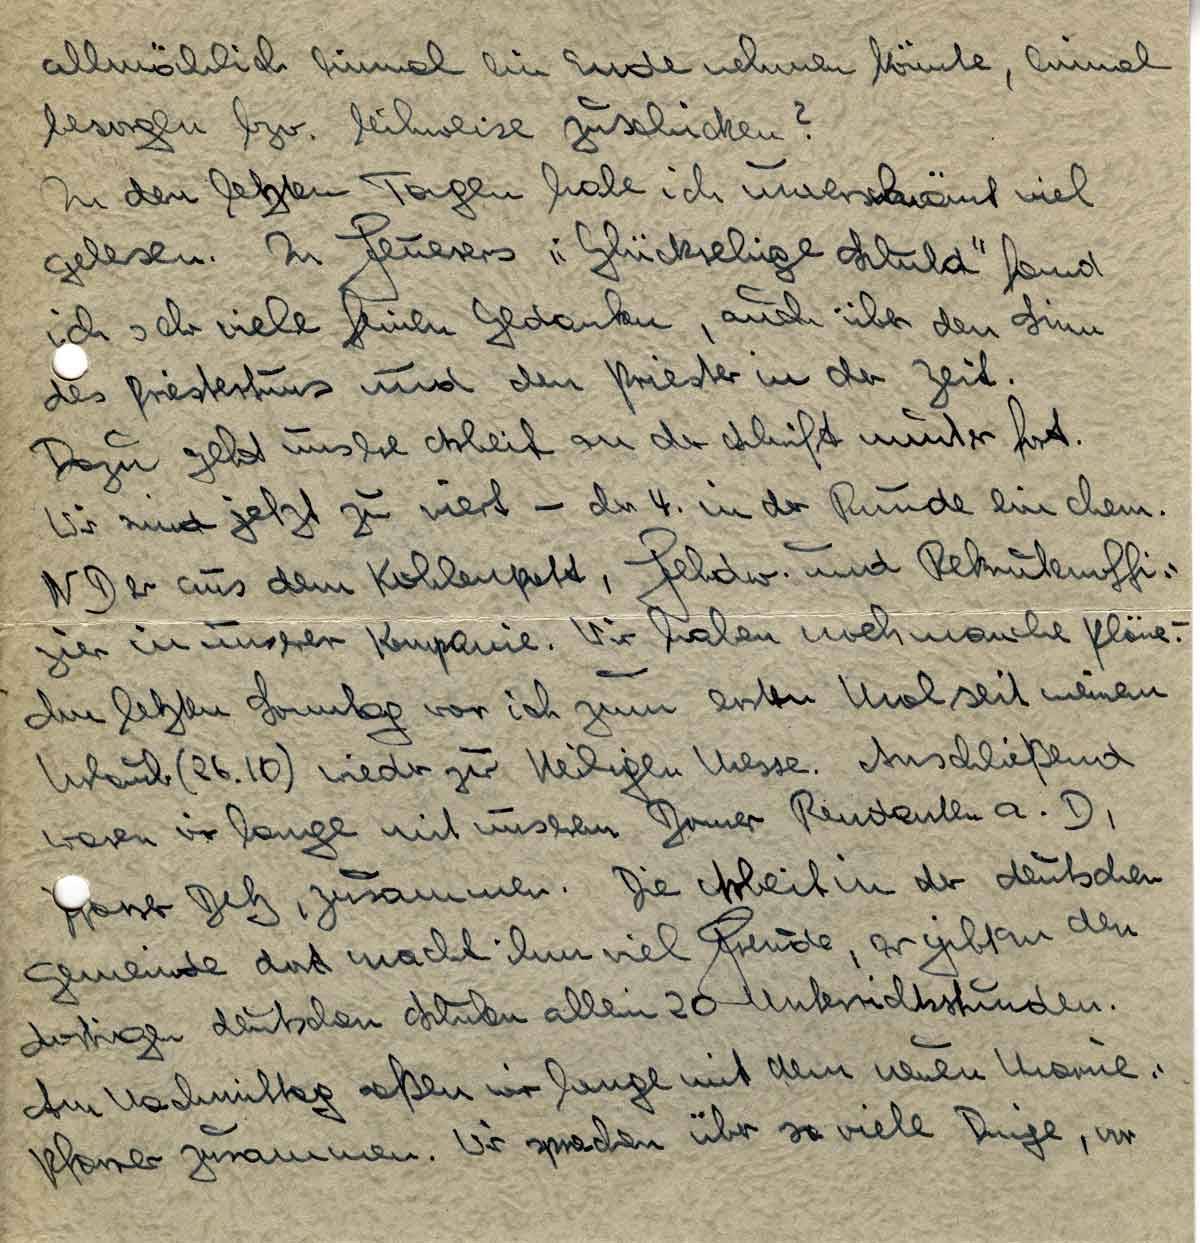 allmählich einmal ein Ende nehmen könnte, einmal
besorgen bzw. leihweise zuschicken?
In den letzten Tagen habe ich unverschämt viel
gelesen. In Feuerers "Glückselige Schuld" fand
ich sehr viele feinen Gedanken, auch über den Sinn
des Priestertums und den Priester in der Zeit.
Dazu geht unsere Arbeit an der Schrift munter fort.
Wir sind jetzt zu viert – der 4. in der Runde ein ehem.
NDer aus dem Kohlenpott, Feldw. und Rekrutenoffi-
zier in unserer Kompanie. Wir haben noch manche Pläne. –
Am letzten Sonntag war ich zum ersten Mal seit meinem
Urlaub (26.10) wieder zur Heiligen Messe. Anschließend
waren wir lange mit unserem Rendanten a. D,
Pfarrer, zusammen. Die Arbeit in der deutschen
Gemeinde dort macht ihm viel Freude, er gibt an den
dortigen deutschen Schulen allein 20 Unterrichtsstunden.
Am Nachmittag saßen wir lange mit dem neuen Marine-
pfarrer zusammen. Wir sprachen über so viele Dinge, wir